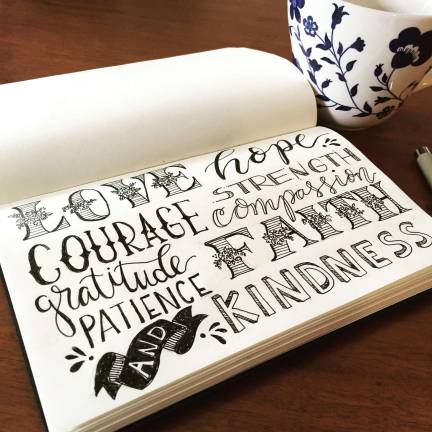 LOVE hope
COURAGE STRENGTH
gratitude compassion
PATIENCE FAITH
AND KINDNESS